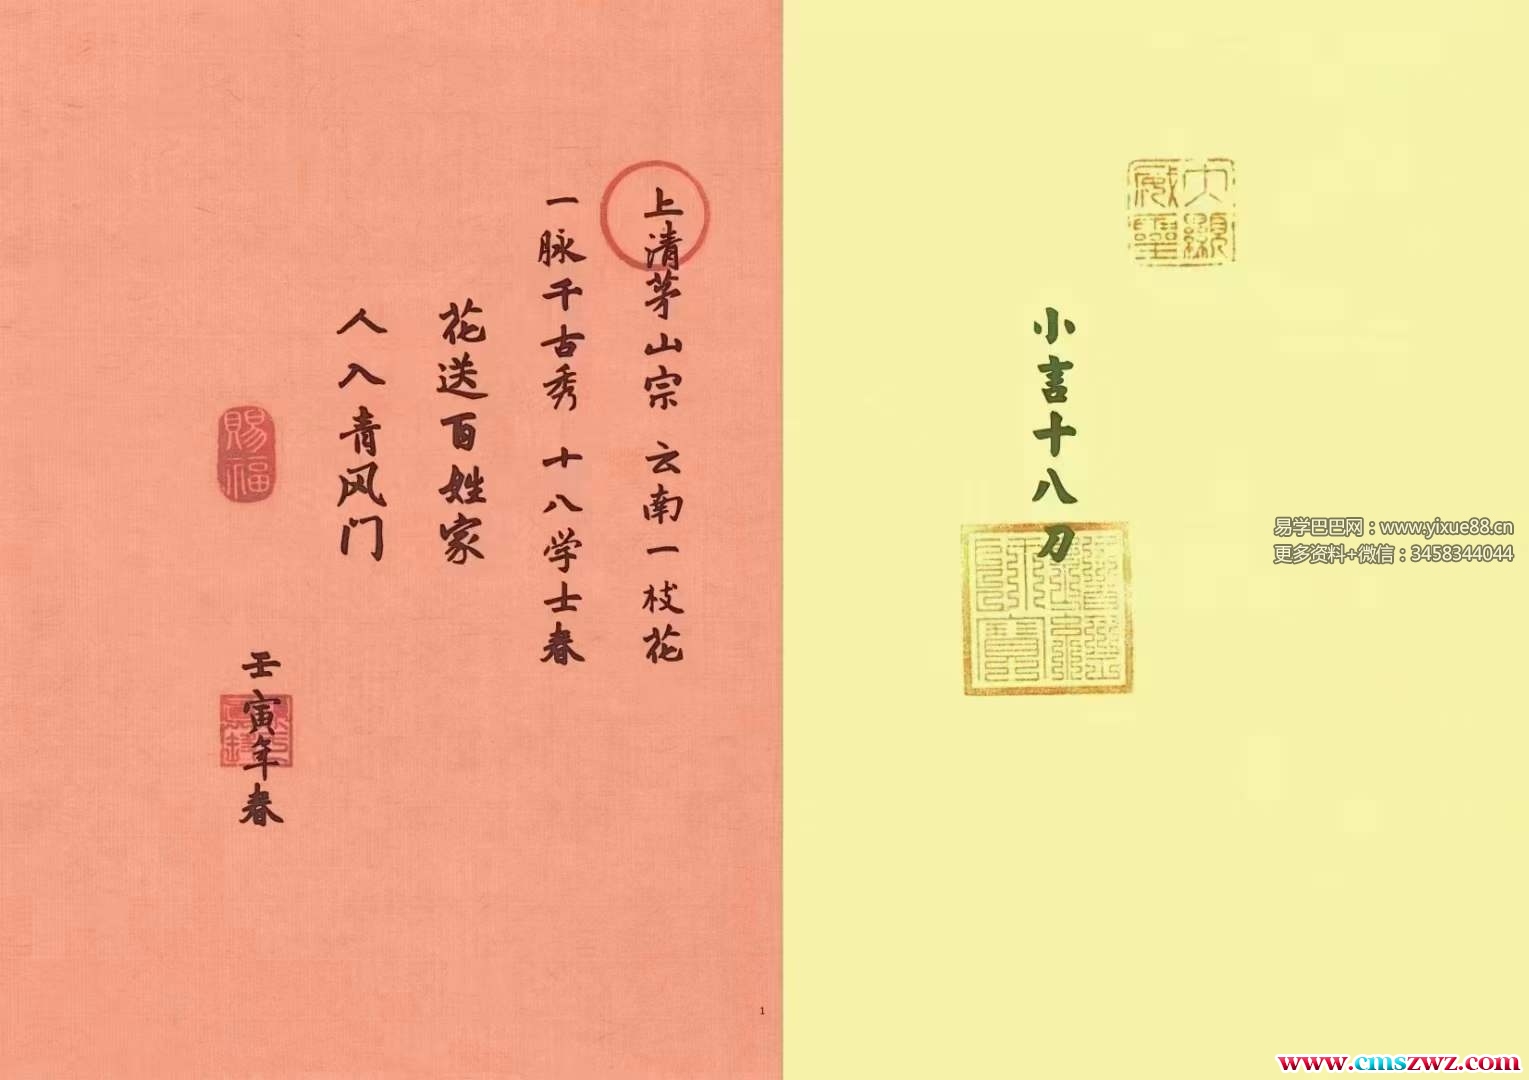 上清茅山宗 云南一枝花
一脉千古秀 十八学士春
花送百姓家
人入青风门
賜福
壬寅年春
1
大顯威靈
小言十八刀
易学巴巴网：www.yixue88.cn
更多资料+微信：3458344044
www.cmszwz.com